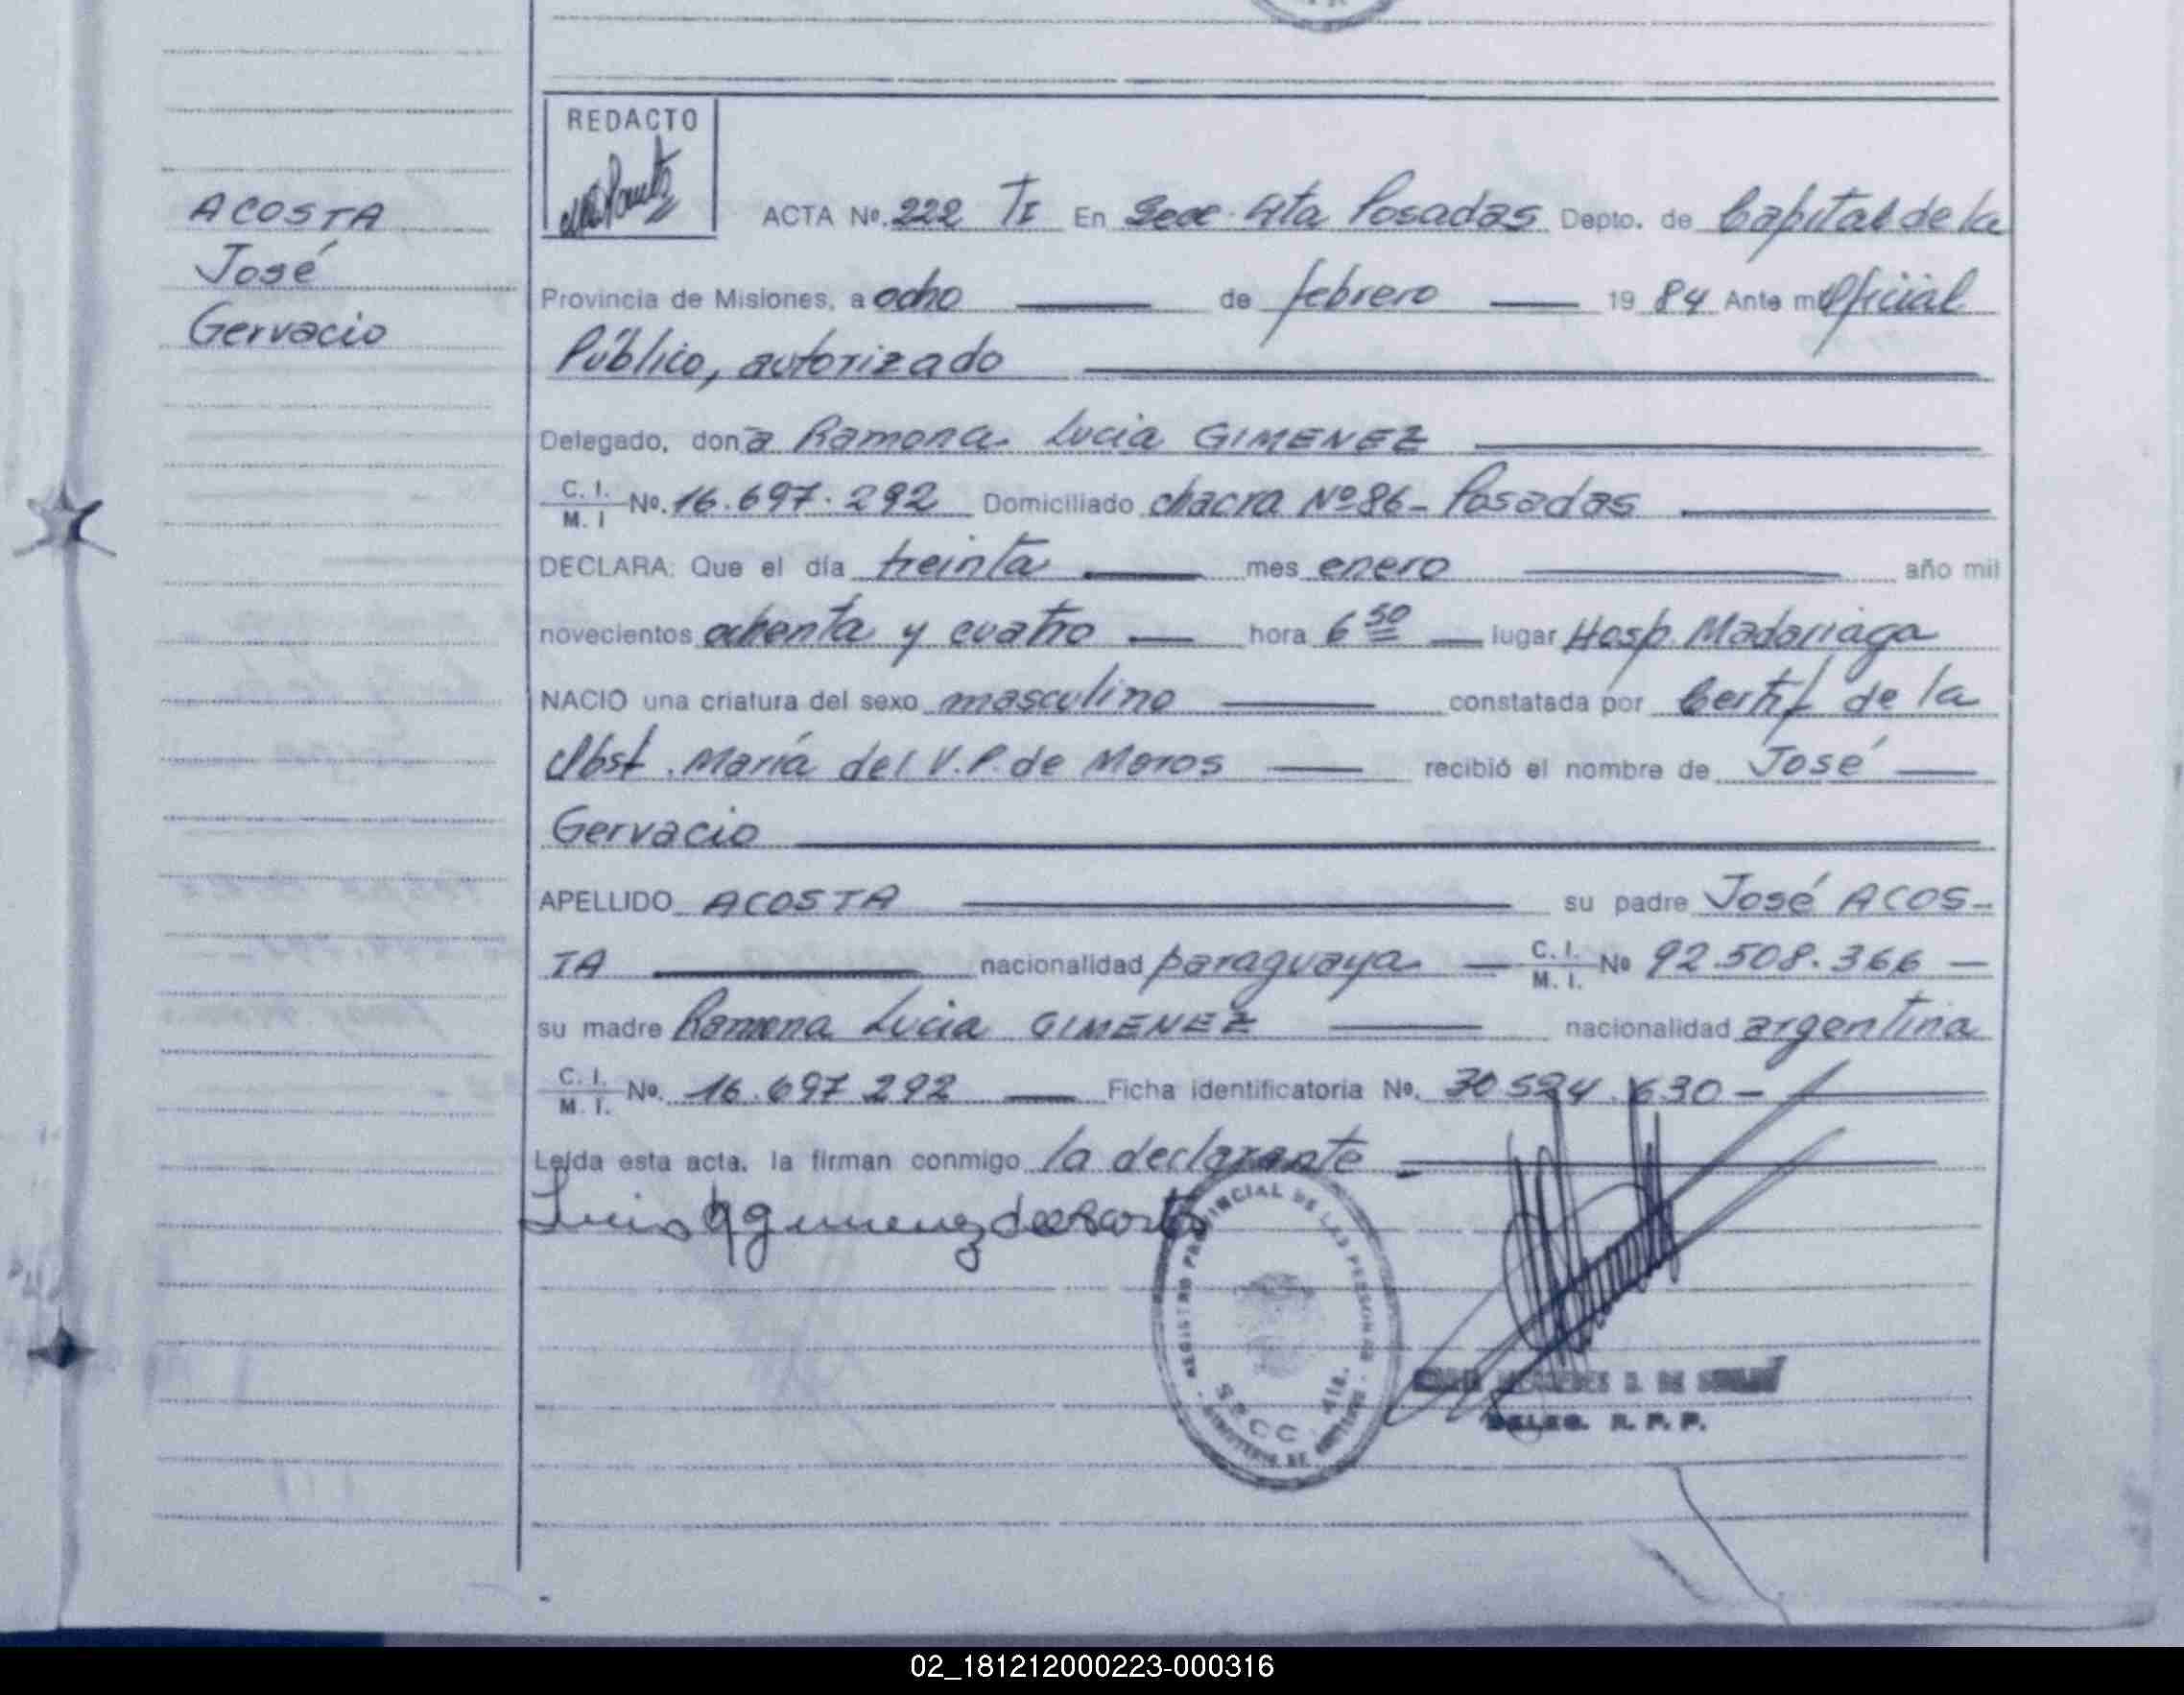 ACOSTA
José
Gervacio
REDACTO
ACTA No. 222 TI En Secc. 4ta Posadas Depto. de Capital de la
Provincia de Misiones, a ocho de febrero 1984 Ante mi Oficial
Público, autorizado
Delegado, doña Ramona Lucia GIMENEZ
C. I. M. I No. 16.697.292 Domiciliado chacra Nº 86 - Posadas
DECLARA: Que el día treinta mes enero año mil
novecientos ochenta y cuatro hora 6 50 lugar Hosp. Madariaga
NACIO una criatura del sexo masculino constatada por Certif de la
Obst. María del V.P. de Moros recibió el nombre de José
Gervacio
APELLIDO ACOSTA su padre José ACOS-
TA nacionalidad paraguaya C. I. M. I. No 92.508.366
su madre Ramona Lucia GIMENEZ nacionalidad argentina
C. I. M. I. No. 16.697.292 Ficha identificatoria No. 30.524.630 -
Leída esta acta, la firman conmigo la declarante
REGISTRO PROVINCIAL DE LAS PERSONAS
DELEG. R. P. P.
02_181212000223-000316